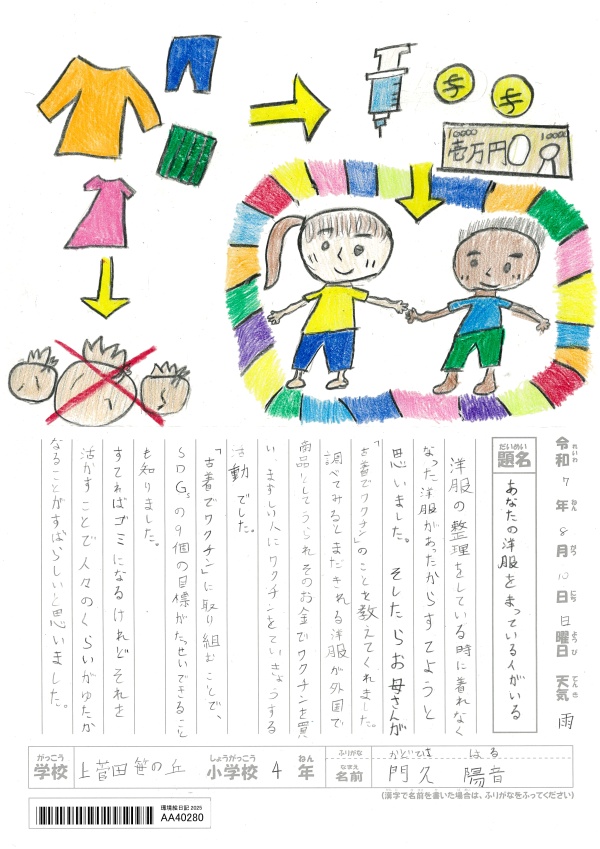 10000
10000
壱万円
令和7年8月10日 日曜日 天気 雨
れいわ ねん がつ にち ようび てんき
だいめい
題名
あなたの洋服をまっている人がいる
洋服の整理をしている時に着れなく
なった洋服があったからすてようと
思いました。そしたらお母さんが
「古着でワクチン」のことを教えてくれました。
調べてみるとまだきれる洋服が外国で
商品としてうられそのお金でワクチンを買
い、まずしい人にワクチンをていきょうする
活動でした。
「古着でワクチン」に取り組むことで、
SDGsの9個の目標がたっせいできること
も知りました。
すてればゴミになるけれどそれを
活かすことで人々のくらいがゆたか
なることがすばらしいと思いました。
がっこう しょうがっこう ねん ふりがな かどひさ はる
学校 上菅田笹の丘 小学校 4年 なまえ 名前 門久 陽音
(漢字で名前を書いた場合は、ふりがなをふってください)
環境絵日記 2025
AA40280